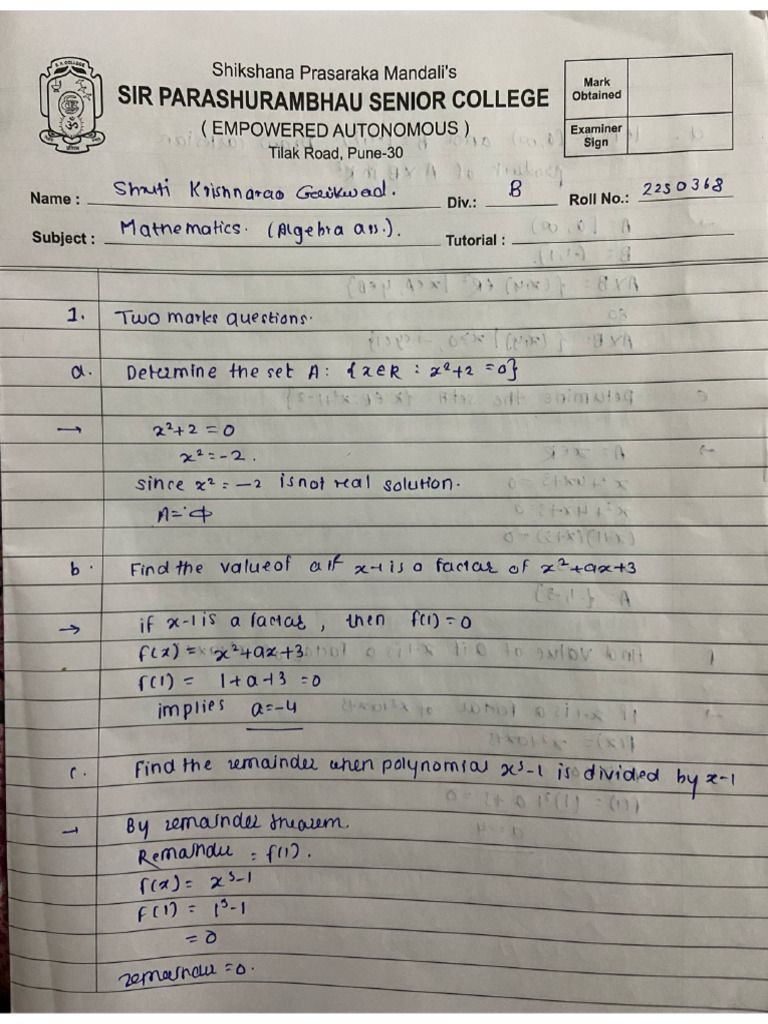 Shikshana Prasaraka Mandali's
SIR PARASHURAMBHAU SENIOR COLLEGE
( EMPOWERED AUTONOMOUS )
Tilak Road, Pune-30
Mark Obtained
Examiner Sign
Name : Shruti Krishnarao Gaikwad. Div.: B Roll No.: 2250368
Subject : Mathematics. (Algebra ass.). Tutorial :
1. Two marks questions.
a. Determine the set A: {x∈R : x²+2 =0}
→ x²+2 = 0
x² = -2.
since x² = -2 is not real solution.
A = ϕ
b. Find the value of a if x-1 is a factor of x²+ax+3
→ if x-1 is a factor, then f(1) = 0
f(x) = x²+ax+3
f(1) = 1+a+3 = 0
implies a=-4
c. Find the remainder when polynomial x³-1 is divided by x-1
→ By remainder theorem.
Remainder = f(1).
f(x) = x³-1
f(1) = 1³-1
= 0
remainder = 0.